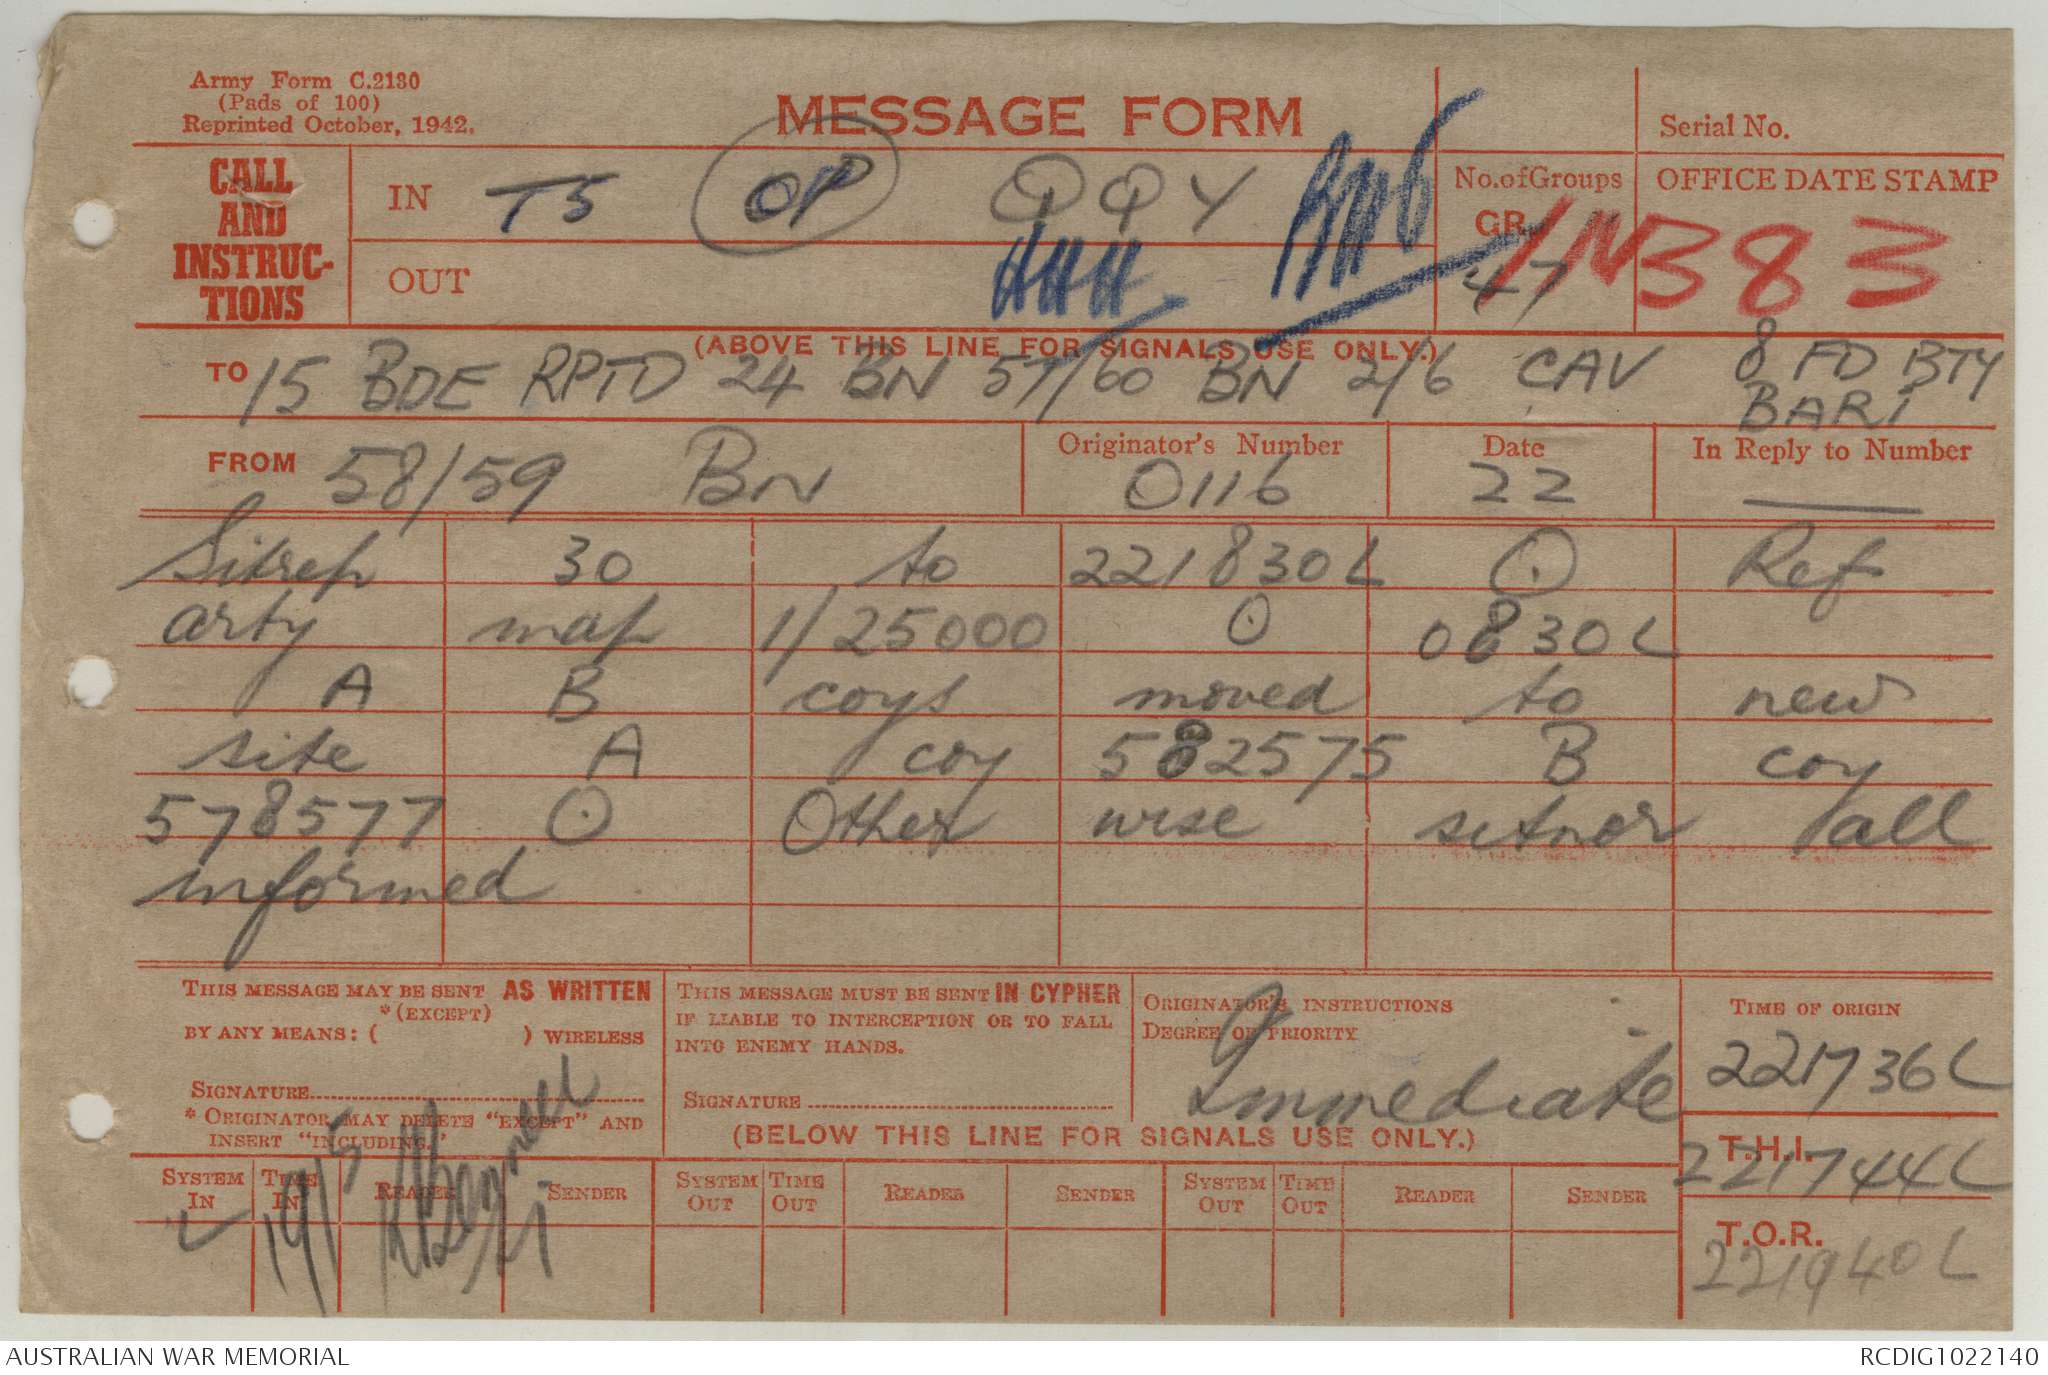 Army Form C.2130
(Pads of 100)
Reprinted October, 1942.
MESSAGE FORM
Serial No.
CALL AND INSTRUC-TIONS
IN T5 OP QQY
No. of Groups GR. 47
OFFICE DATE STAMP
IN 383
OUT
(ABOVE THIS LINE FOR SIGNALS USE ONLY.)
TO 15 BDE RPTD 24 BN 57/60 BN 2/6 CAV 8 FD BTY
BARI
FROM 58/59 BN
Originator's Number 0116
Date 22
In Reply to Number
Sitrep 30 to 221830L ⊙ Ref
arty map 1/25000 ⊙ 0830L
A B coys moved to new
site A coy 582575 B coy
578577 ⊙ Other wise sitnor all
informed
THIS MESSAGE MAY BE SENT AS WRITTEN
*(EXCEPT)
BY ANY MEANS: ( ) WIRELESS
SIGNATURE
* ORIGINATOR MAY DELETE "EXCEPT" AND
INSERT "INCLUDING."
THIS MESSAGE MUST BE SENT IN CYPHER
IF LIABLE TO INTERCEPTION OR TO FALL
INTO ENEMY HANDS.
SIGNATURE
ORIGINATOR'S INSTRUCTIONS
DEGREE OF PRIORITY
Immediate
TIME OF ORIGIN
221736L
(BELOW THIS LINE FOR SIGNALS USE ONLY.)
T.H.I.
221744L
SYSTEM IN TIME IN READER SENDER SYSTEM OUT TIME OUT READER SENDER SYSTEM OUT TIME OUT READER SENDER
1915
T.O.R.
221940L
AUSTRALIAN WAR MEMORIAL
RCDIG1022140